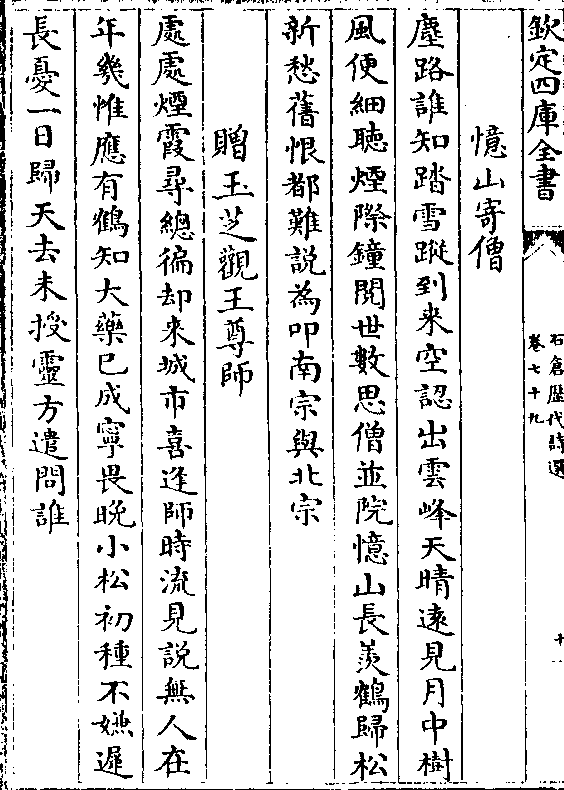 欽定四庫全書
石倉歷代詩選
卷七十九
十一
憶山寄僧
塵路誰知踏雪蹤到来空認出雲峰天晴逺見月中樹
風便細聽煙際鐘閱世數思僧並院憶山長羨鶴歸松
新愁舊恨都難説為叩南宗與北宗
贈玉芝觀王尊師
處處煙霞尋總徧却来城市喜逢師時流見説無人在
年幾惟應有鶴知大藥已成寧畏晩小松初種不嫌遲
長憂一日歸天去未授靈方遣問誰